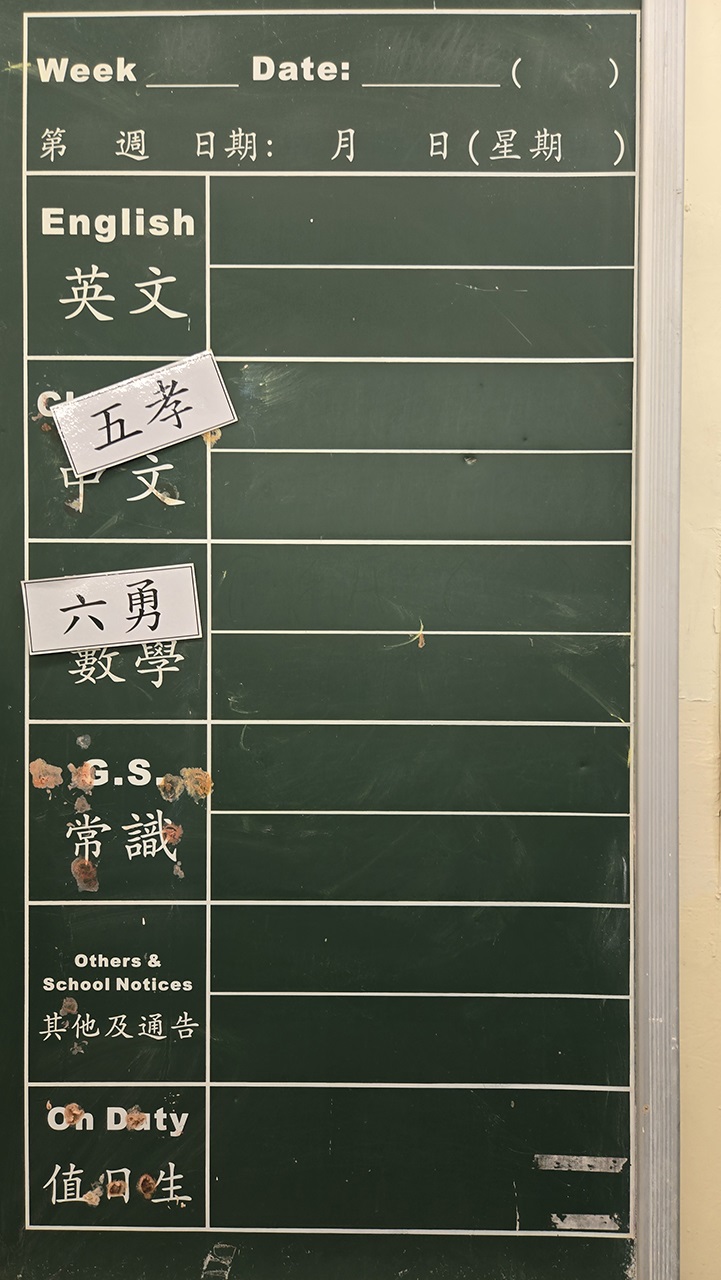 Week ______ Date: _________ ( )
第 週 日期: 月 日(星期 )
English
英文
五孝
中文
六勇
數學
G.S.
常識
Others &
School Notices
其他及通告
On Duty
值日生